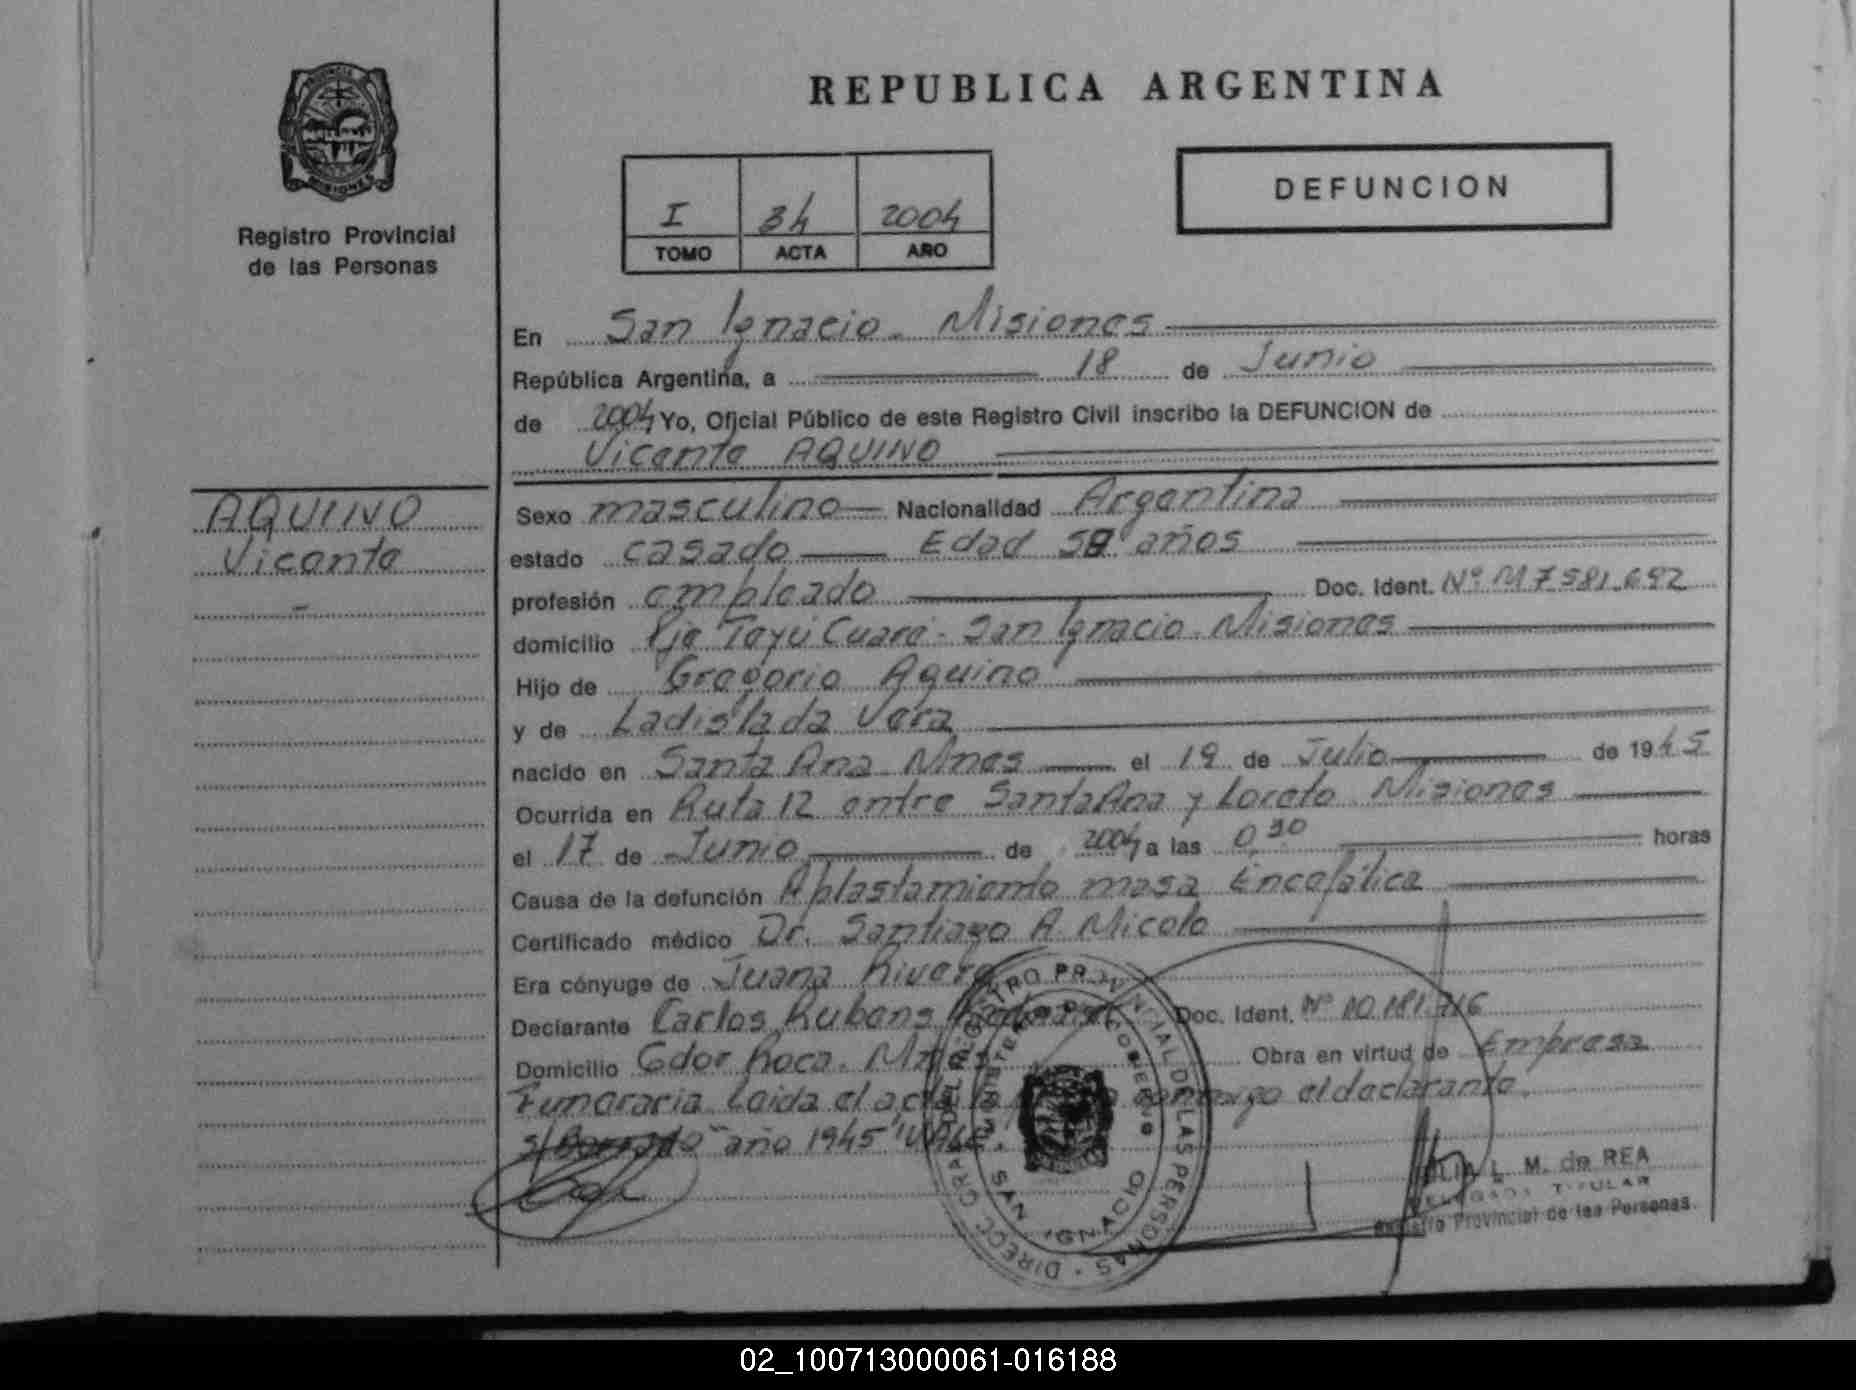 PROVINCIA
MISIONES
Registro Provincial
de las Personas
AQUINO
Vicente
REPUBLICA ARGENTINA
I 34 2004
TOMO ACTA AÑO
DEFUNCION
En San Ignacio - Misiones
República Argentina, a 18 de Junio
de 2004 Yo, Oficial Público de este Registro Civil inscribo la DEFUNCION de
Vicente AQUINO
Sexo masculino Nacionalidad Argentina
estado casado Edad 58 años
profesión empleado Doc. Ident. Nº M7.581.692
domicilio Pje Teyú Cuaré - San Ignacio - Misiones
Hijo de Gregorio Aquino
y de Ladislada Vera
nacido en Santa Ana Mnes el 19 de Julio de 1945
Ocurrida en Ruta 12 entre Santa Ana y Loreto Misiones
el 17 de Junio de 2004 a las 0,30 horas
Causa de la defunción Aplastamiento masa Encefálica
Certificado médico Dr. Santiago A. Micolo
Era cónyuge de Juana Rivero
Declarante Carlos Rubens Doc. Ident. Nº 10.181.716
Domicilio Gdor Roca. Mnes Obra en virtud de Empresa
Funeraria Leida el acta la conmigo el declarante.
s/Borrado "año 1945" VALE
DIRECC GRAL DEL REGISTRO PROVINCIAL DE LAS PERSONAS
MINISTERIO DE GOBIERNO
SAN IGNACIO
L. M. de REA
DELEGADA TITULAR
Registro Provincial de las Personas
02_100713000061-016188